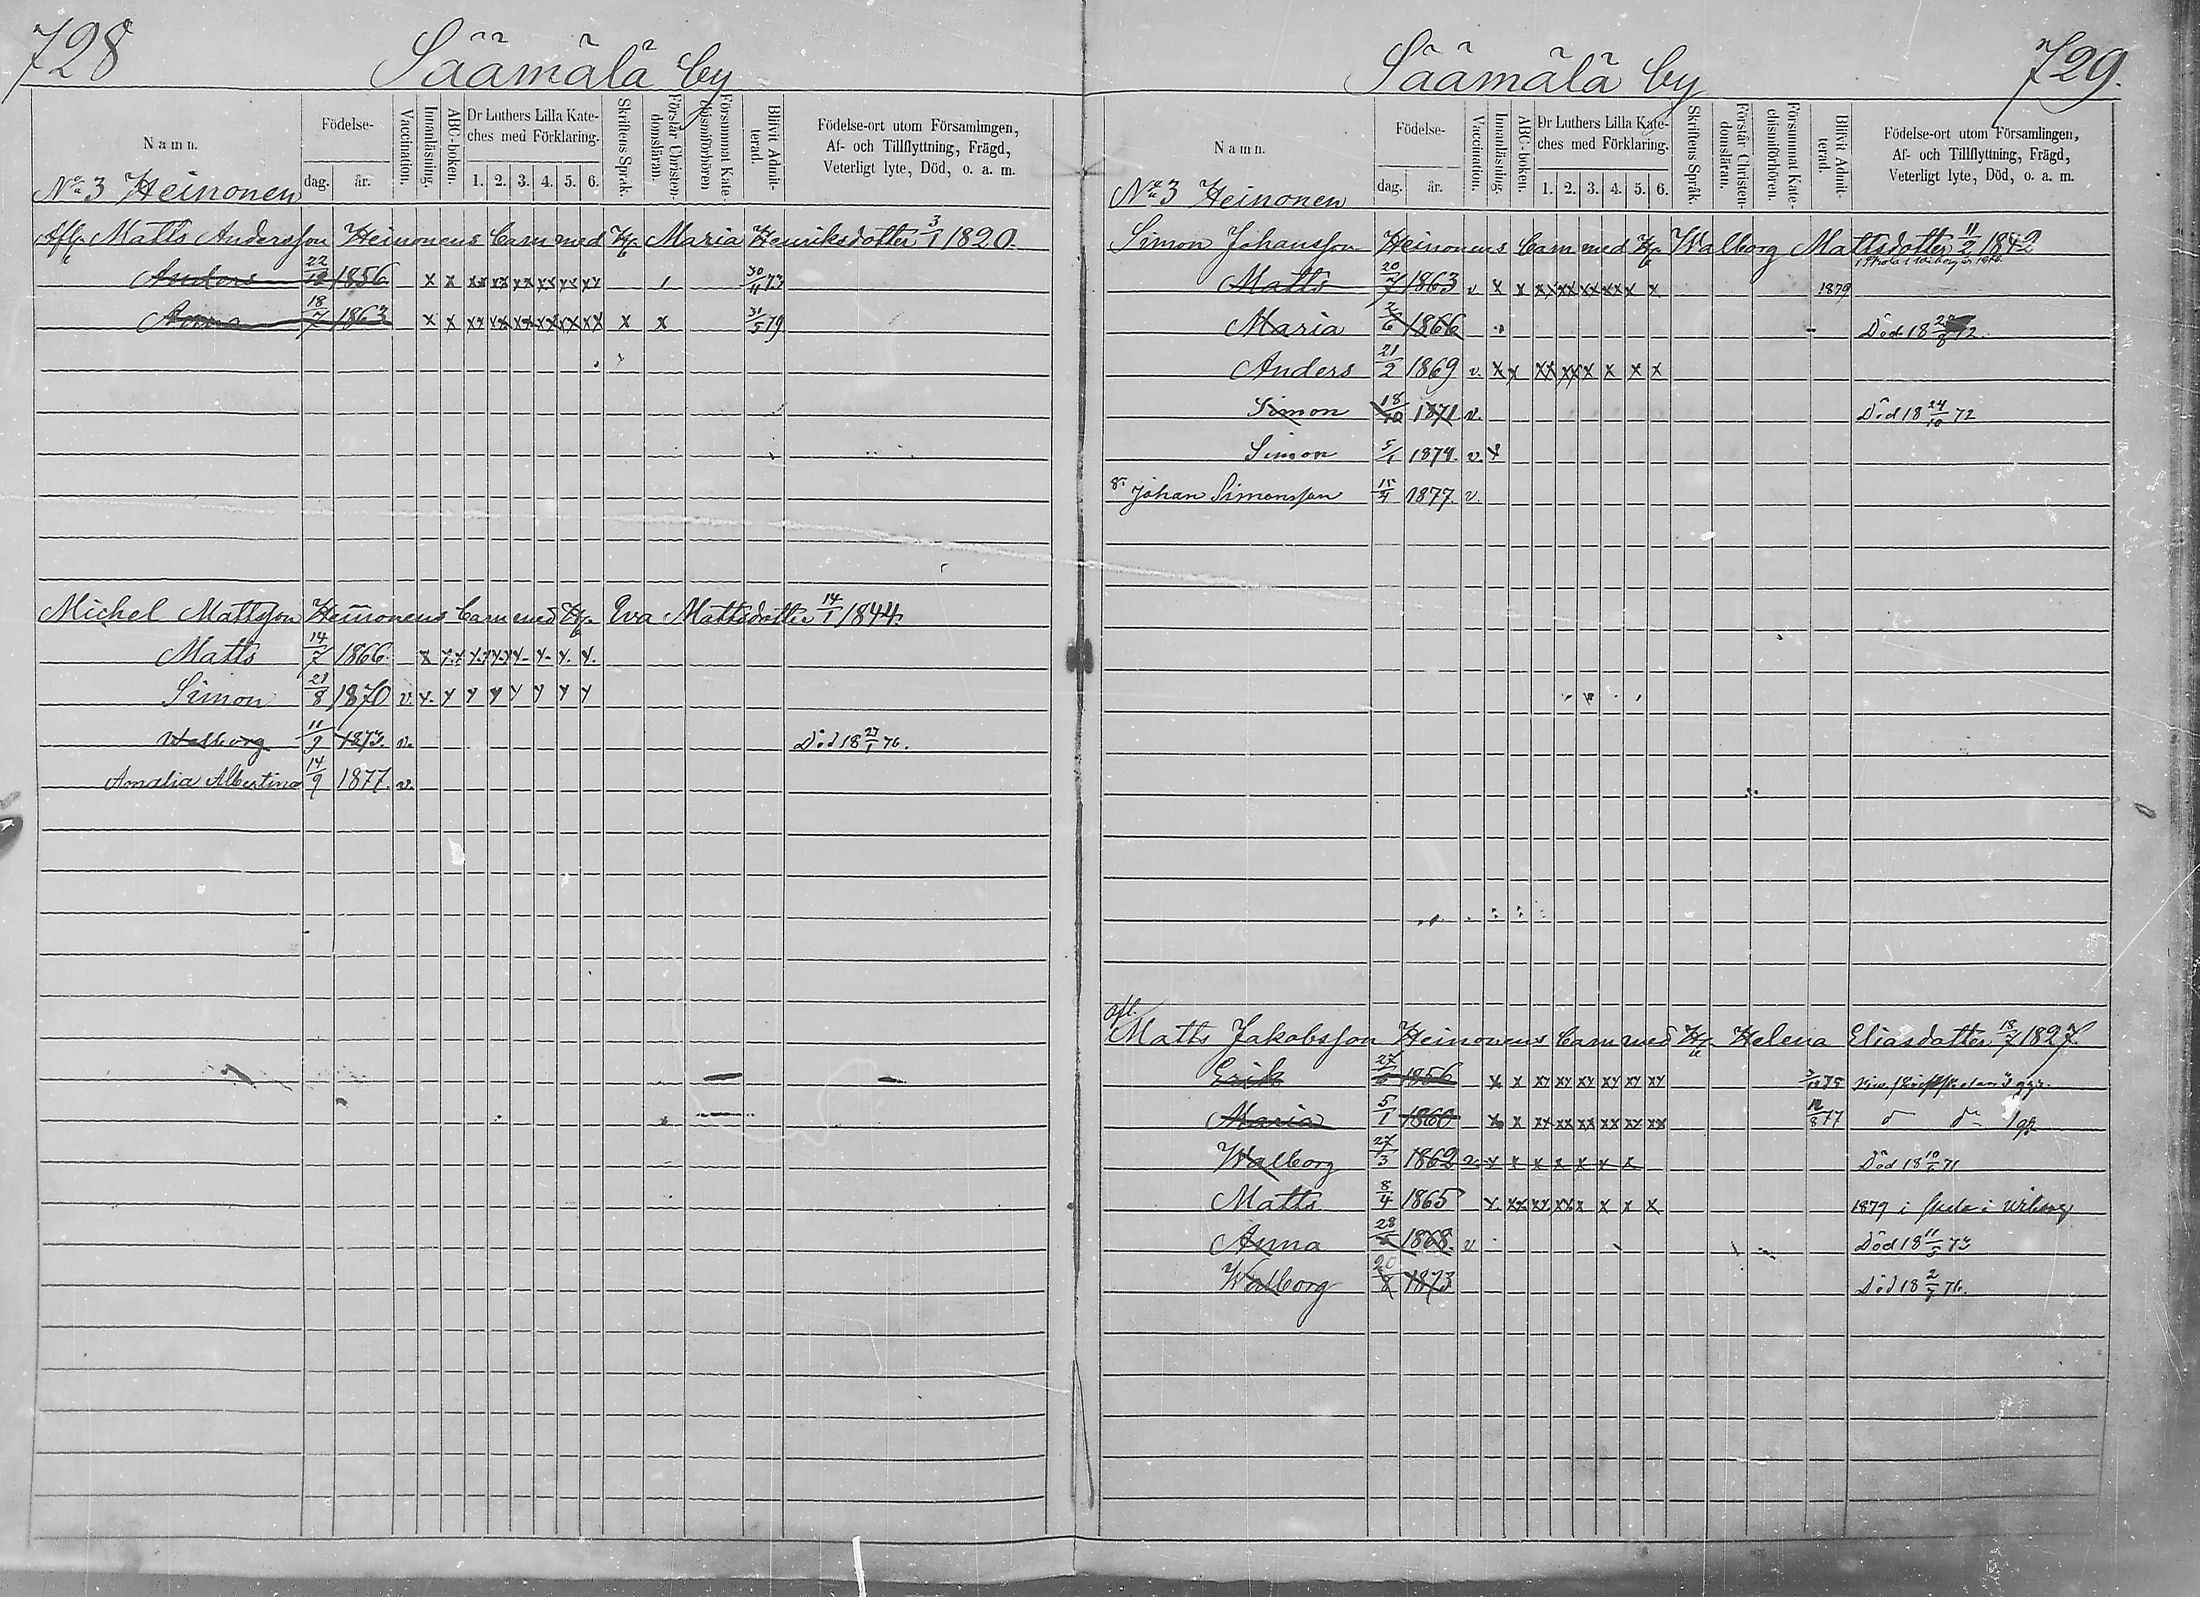 728
Säämälä by
Namn.
Födelse-
dag.
år.
Vaccination.
Innanläsning.
ABC-boken.
Dr Luthers Lilla Kateches med Förklaring.
1. 2. 3. 4. 5. 6.
Skriftens Språk.
Förstår Christendomsläran.
Försummat Katechismiförhören
Blivit Admitterad.
Födelse-ort utom Församlingen,
Af- och Tillflyttning, Frägd,
Veterligt lyte, Död, o. a. m.
No 3 Heinonen
Afl. Matts Andersson Heinonens barn med H. Maria Henriksdotter 3/1 1820.
Anders 22/12 1856 x x xx xx xx xx xx xx 30/11 73
Anna 18/7 1863 x x xx xx xx xx xx xx x x 31/5 79
Michel Mattsson Heinonens barn med H. Eva Mattsdotter 14/1 1844.
Matts 14/7 1866
Simon 21/8 1870 v.
Walborg 11/9 1873. v. Död 18 27/1 76.
Amalia Albertina 14/9 1877. v.
729.
Säämälä by
Namn.
Födelse-
dag.
år.
Vaccination.
Innanläsning.
ABC-boken.
Dr Luthers Lilla Kateches med Förklaring.
1. 2. 3. 4. 5. 6.
Skriftens Språk.
Förstår Christendomsläran.
Försummat Katechismiförhören.
Blivit Admitterad.
Födelse-ort utom Församlingen,
Af- och Tillflyttning, Frägd,
Veterligt lyte, Död, o. a. m.
No 3 Heinonen
Simon Johansson Heinonens barn med H. Walborg Mattsdotter 11/2 1842
Matts 20/7 1863 v x x xx xx xx xx x x 1879
Maria 2/6 1866 Död 18 /8 72.
Anders 21/2 1869 v. x x xx xx x x x x
Simon 18/10 1871 v. Död 18 24/10 72
Simon 5/1 1874. v. x
Johan Simonsson 15/4 1877. v.
Afl.
Matts Jakobsson Heinonens barn med H. Helena Eliasdotter 18/7 1827.
Erik 27/6 1856 x x xx xx xx xx xx xx
Maria 5/1 1860 x x xx xx xx xx xx xx 12/8 77
Walborg 27/3 1862 v. x x x x x x x Död 18 71
Matts 8/4 1865 x xx xx xx x x x x 1879 i skola i Wiborg
Anna 28/5 1868. v Död 18 11/5 73
Walborg 20/8 1873 Död 18 2/7 76.